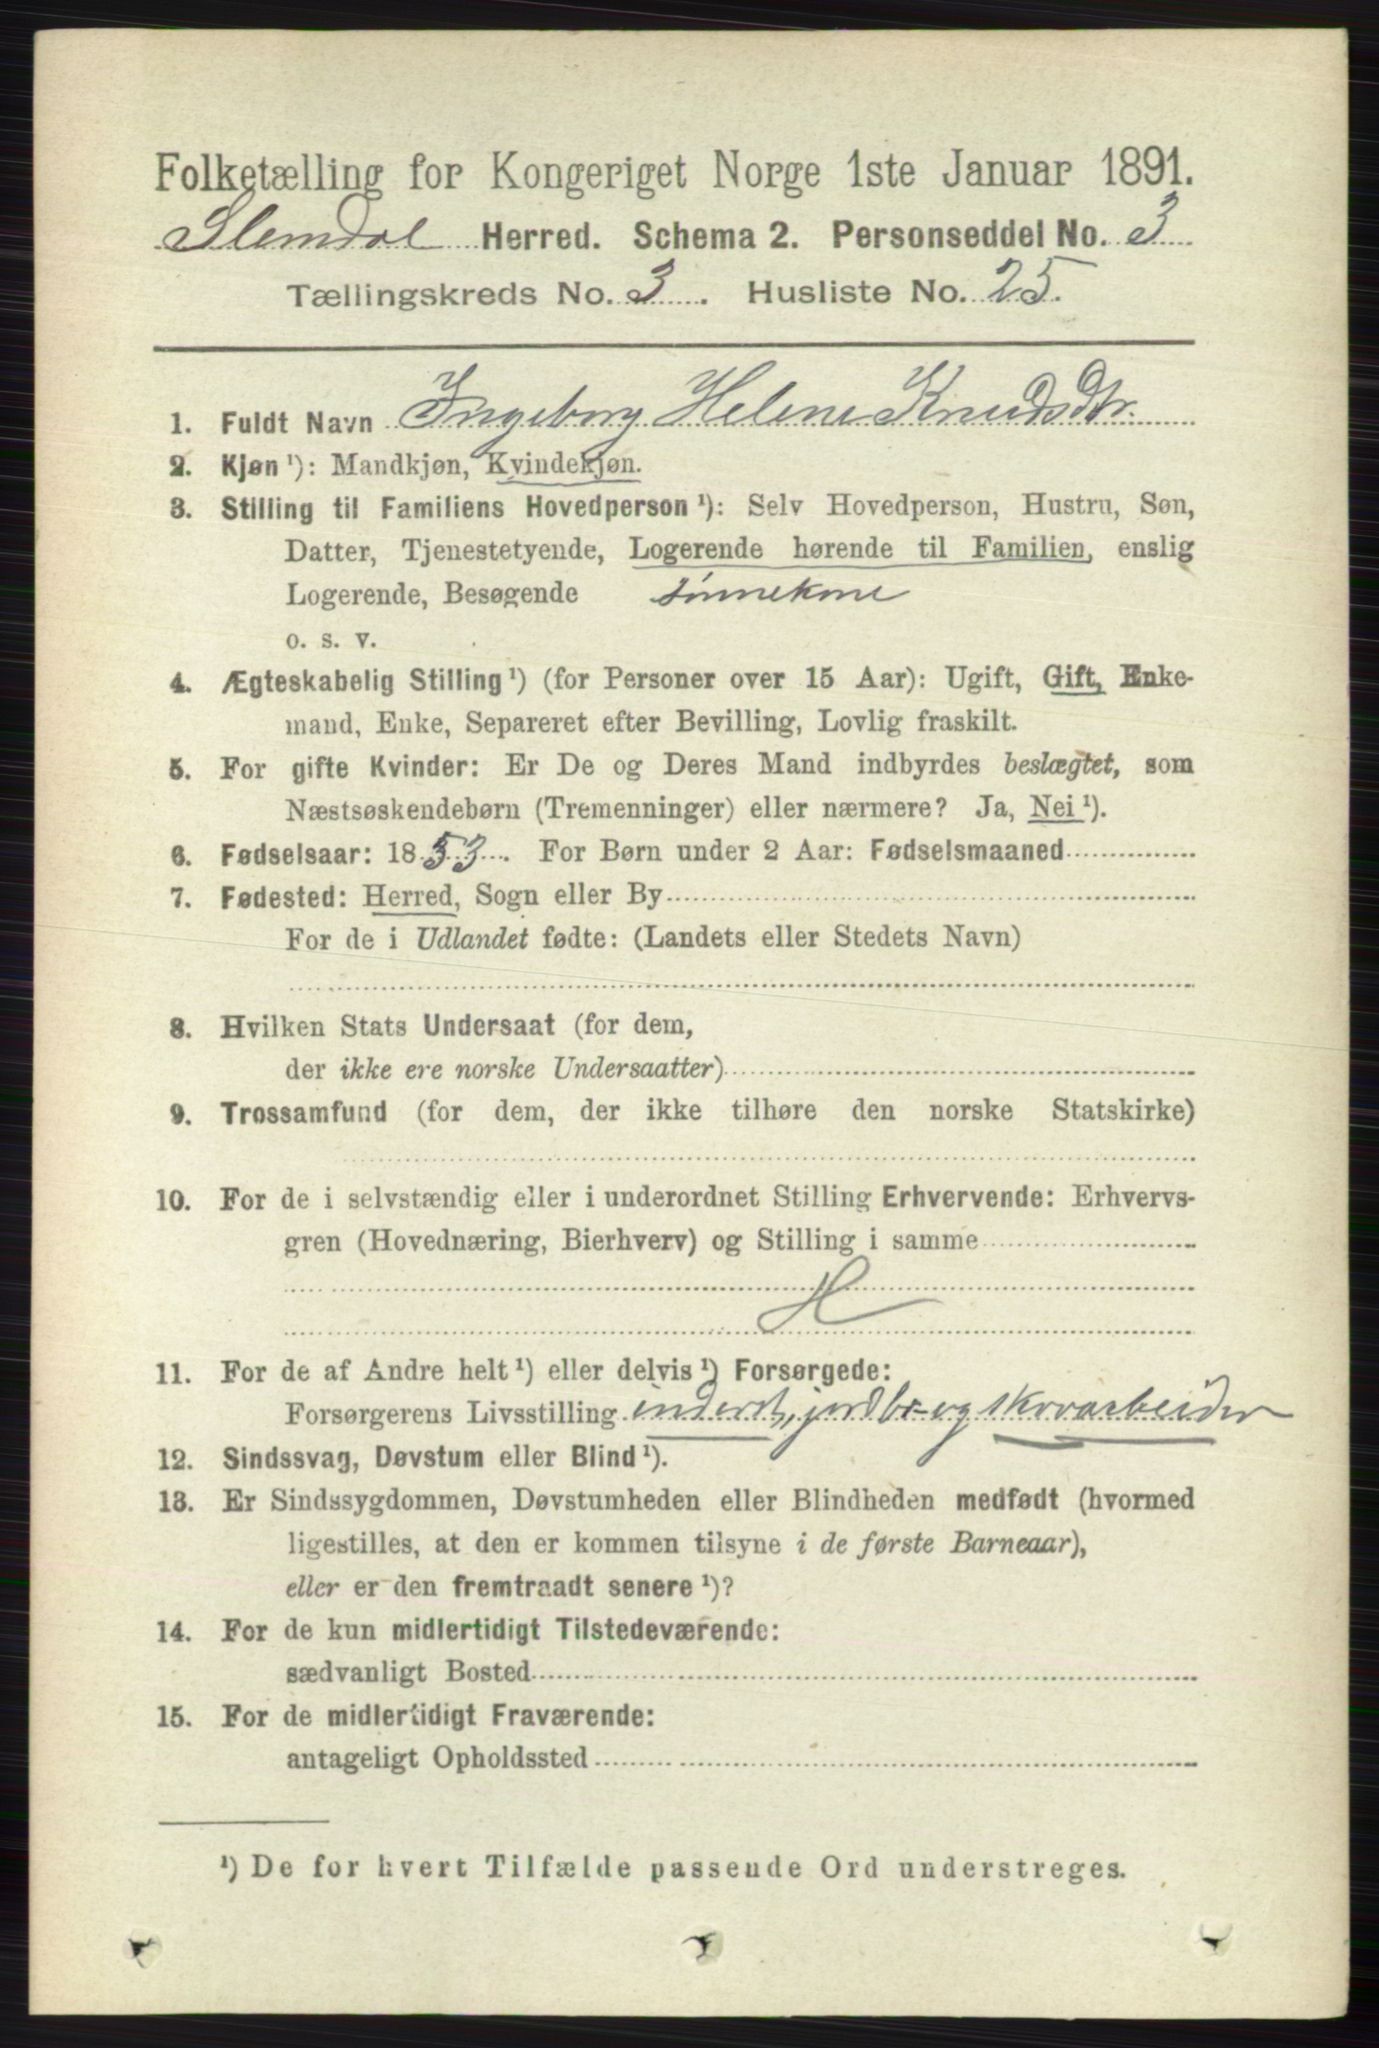 Folketælling for Kongeriget Norge 1ste Januar 1891.
Slemdal Herred. Schema 2. Personseddel No. 3
Tællingskreds No. 3. Husliste No. 25.
1. Fuldt Navn Ingeborg Helene Knudsdtr.
2. Kjøn ¹): Mandkjøn, Kvindekjøn.
3. Stilling til Familiens Hovedperson ¹): Selv Hovedperson, Hustru, Søn,
Datter, Tjenestetyende, Logerende hørende til Familien, enslig
Logerende, Besøgende sønnekone
o. s. v.
4. Ægteskabelig Stilling ¹) (for Personer over 15 Aar): Ugift, Gift, Enke-
mand, Enke, Separeret efter Bevilling, Lovlig fraskilt.
5. For gifte Kvinder: Er De og Deres Mand indbyrdes beslægtet, som
Næstsøskendebørn (Tremenninger) eller nærmere? Ja, Nei ¹).
6. Fødselsaar: 1853. For Børn under 2 Aar: Fødselsmaaned
7. Fødested: Herred, Sogn eller By
For de i Udlandet fødte: (Landets eller Stedets Navn)
8. Hvilken Stats Undersaat (for dem,
der ikke ere norske Undersaatter)
9. Trossamfund (for dem, der ikke tilhøre den norske Statskirke)
10. For de i selvstændig eller i underordnet Stilling Erhvervende: Erhvervs-
gren (Hovednæring, Bierhverv) og Stilling i samme
H
11. For de af Andre helt ¹) eller delvis ¹) Forsørgede:
Forsørgerens Livsstilling inderst, jordbr- og skovarbeider
12. Sindssvag, Døvstum eller Blind ¹).
13. Er Sindssygdommen, Døvstumheden eller Blindheden medfødt (hvormed
ligestilles, at den er kommen tilsyne i de første Barneaar),
eller er den fremtraadt senere ¹)?
14. For de kun midlertidigt Tilstedeværende:
sædvanligt Bosted
15. For de midlertidigt Fraværende:
antageligt Opholdssted
¹) De for hvert Tilfælde passende Ord understreges.